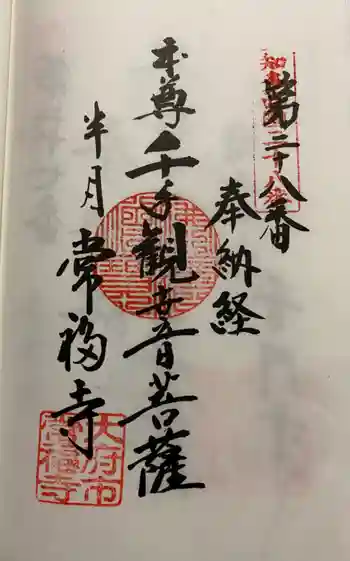 第二十八番
奉納経
本尊千手観世音菩薩
半月
常福寺
大府市
常福寺